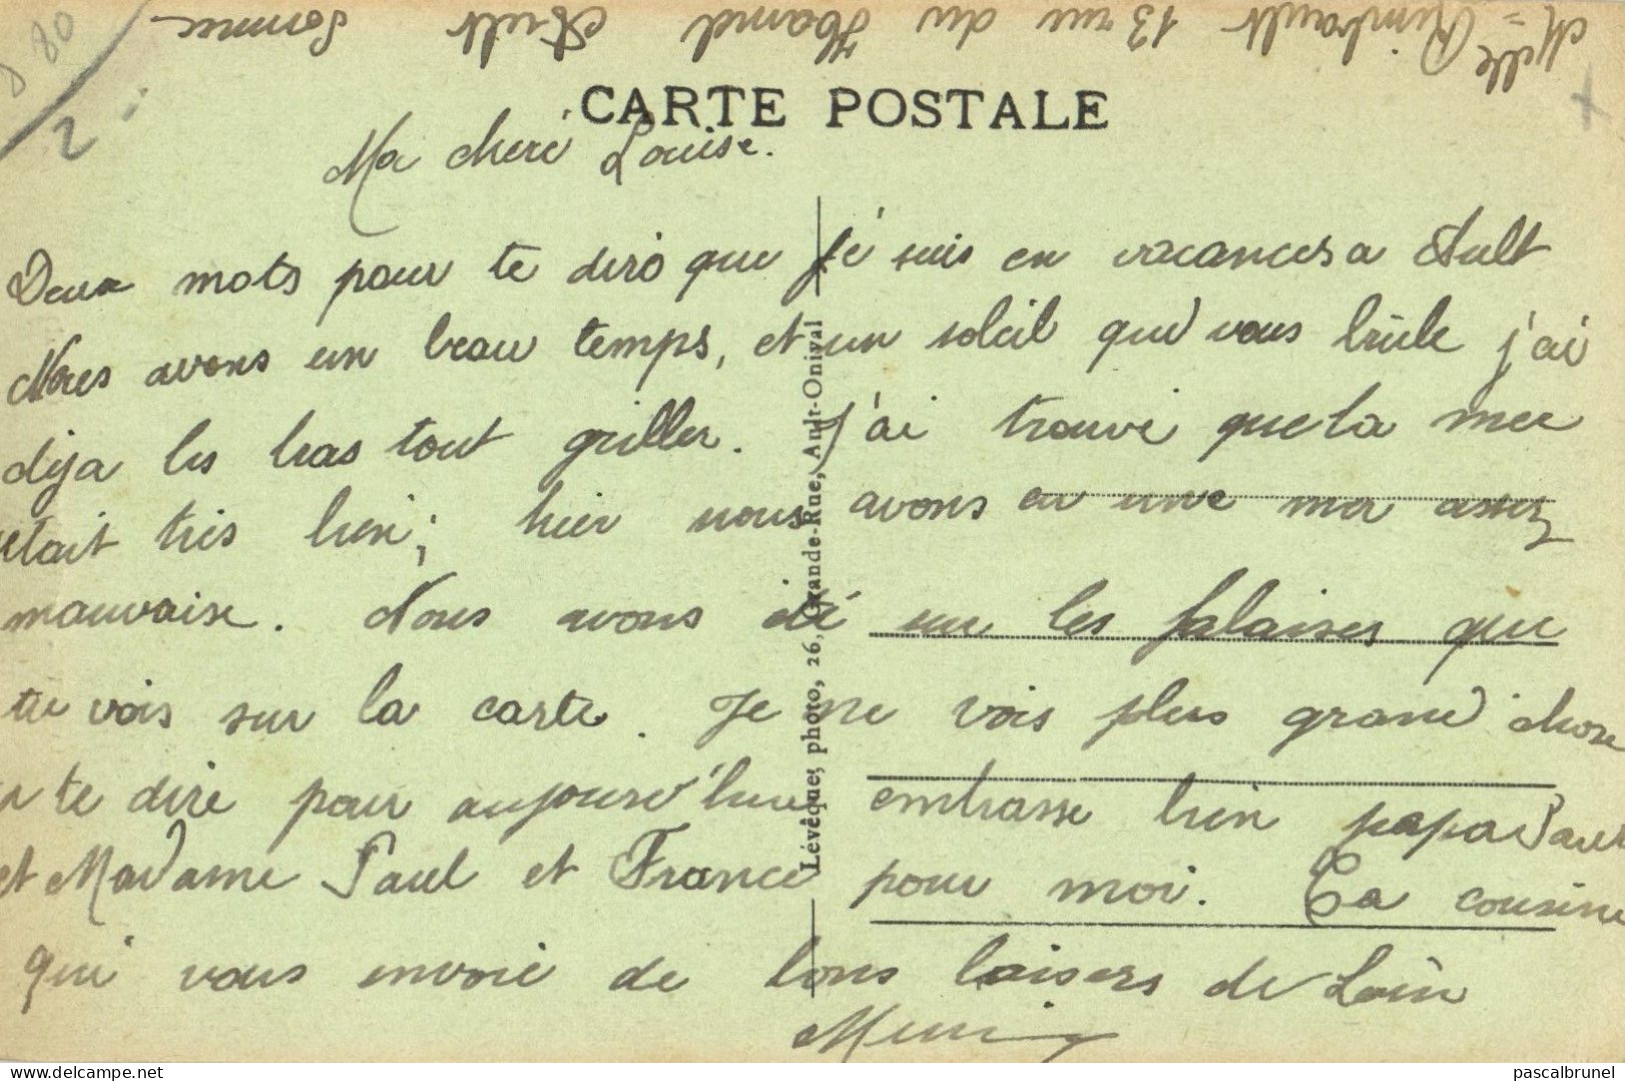 Melle Rimbault 13 rue du Hamel Ault Somme
80
2
CARTE POSTALE
Ma cheré Louise.
Deux mots pour te dire que je suis en vacances a Ault
Nous avons un beau temps, et un soleil qui vous brûle j'ai
deja les bras tout griller. J'ai trouvé que la mer
etait tres bien; hier nous avons eu une mer assez
mauvaise. Nous avons été sur les falaises que
tu vois sur la carte. Je ne vois plus grand chose
a te dire pour aujourd'hui embrasse bien papa Paul
et Madame Paul et France pour moi. Ta cousine
qui vous envoie de bons baisers de Loin
Lévêque, photo, 26, Grande-Rue, Ault-Onival
pascalbrunel